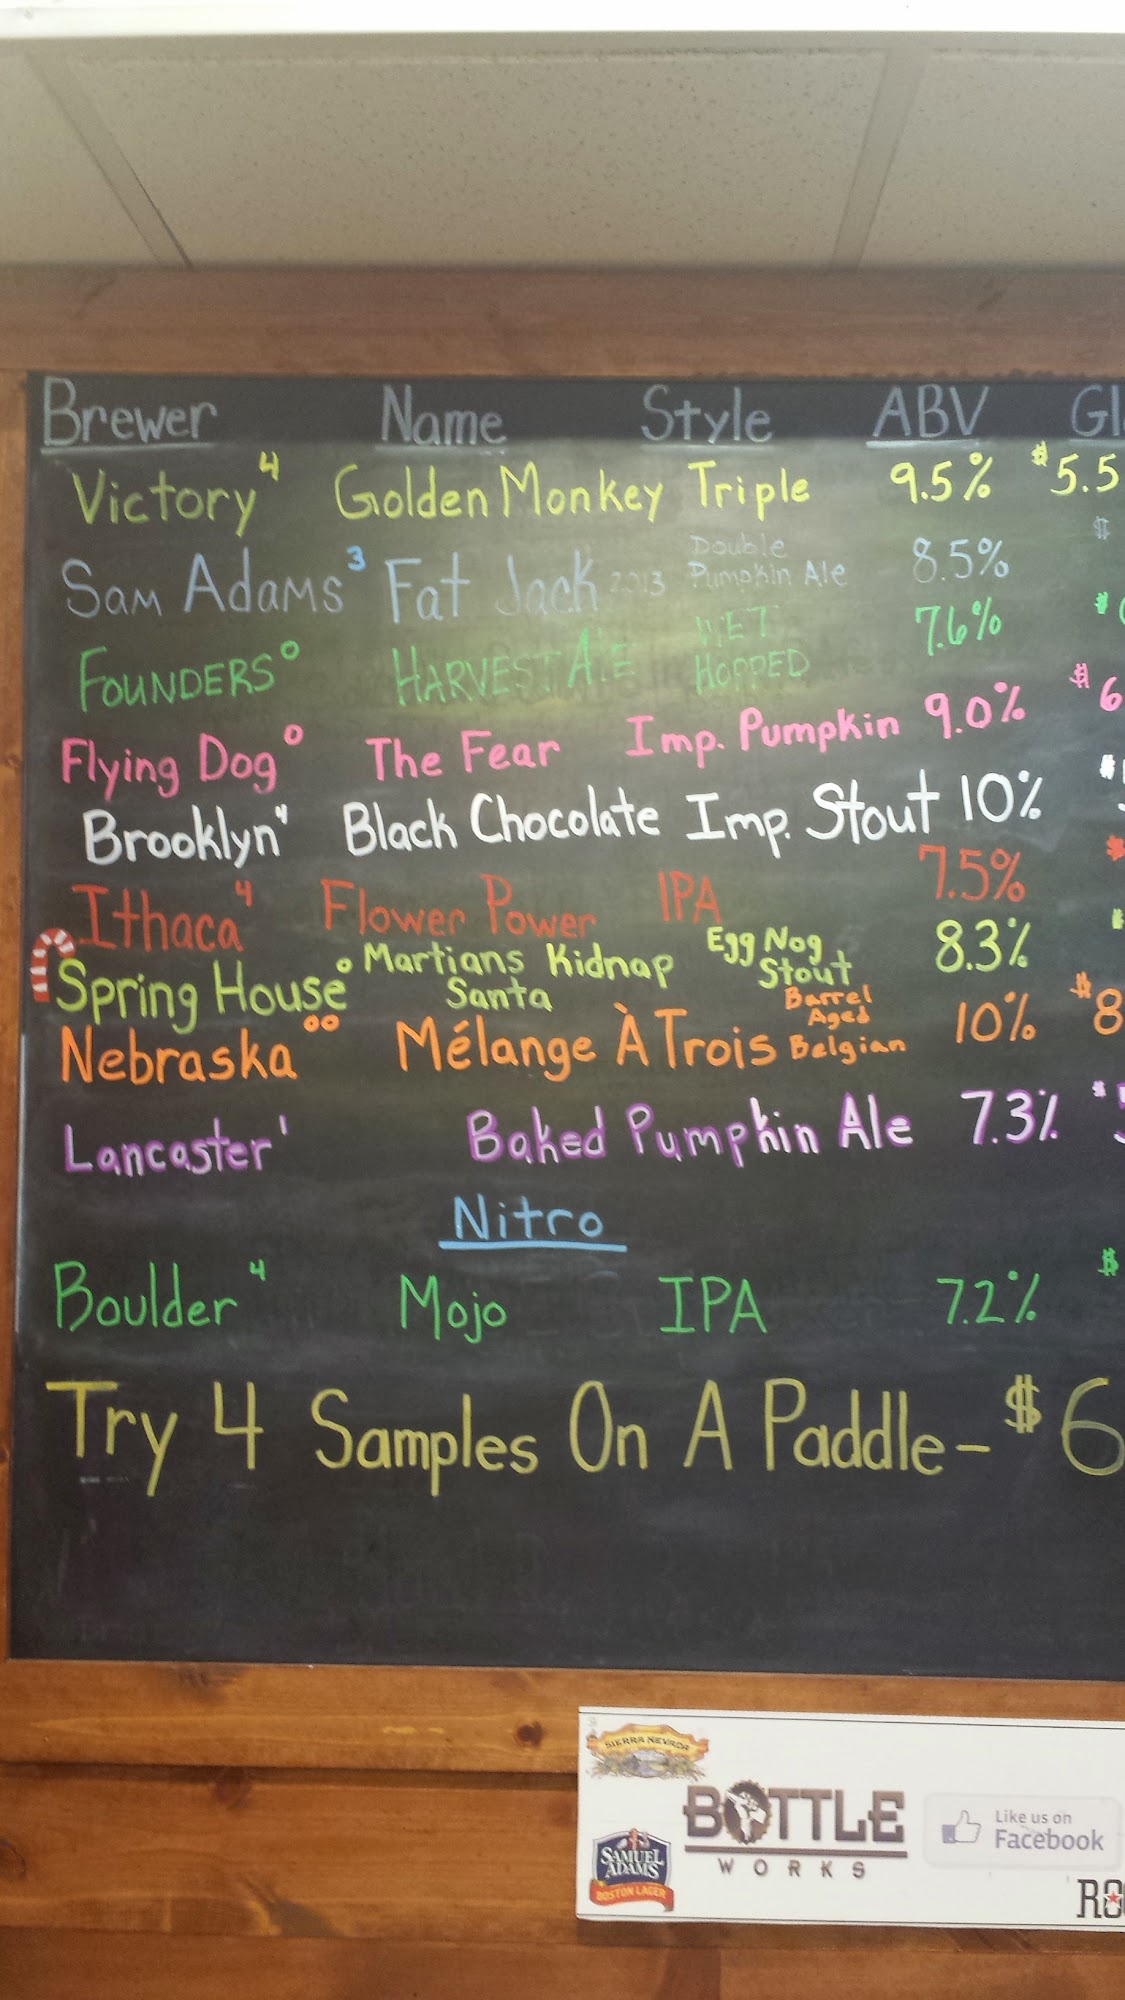 Brewer Name Style ABV Gl
Victory 4 Golden Monkey Triple 9.5% $5.5
Sam Adams 3 Fat Jack 2013 Double Pumpkin Ale 8.5% $
Founders 0 Harvest Ale Wet Hopped 7.6% $
Flying Dog 0 The Fear Imp. Pumpkin 9.0% $6
Brooklyn 4 Black Chocolate Imp. Stout 10% $
Ithaca 4 Flower Power IPA 7.5% $
Spring House 0 Martians Kidnap Santa Egg Nog Stout 8.3%
Nebraska 00 Mélange À Trois Barrel Aged Belgian 10% $8
Lancaster 1 Baked Pumpkin Ale 7.3% $5
Nitro
Boulder 4 Mojo IPA 7.2% $
Try 4 Samples On A Paddle - $6
SIERRA NEVADA
BOTTLE
WORKS
Like us on
Facebook
SAMUEL
ADAMS
BOSTON LAGER